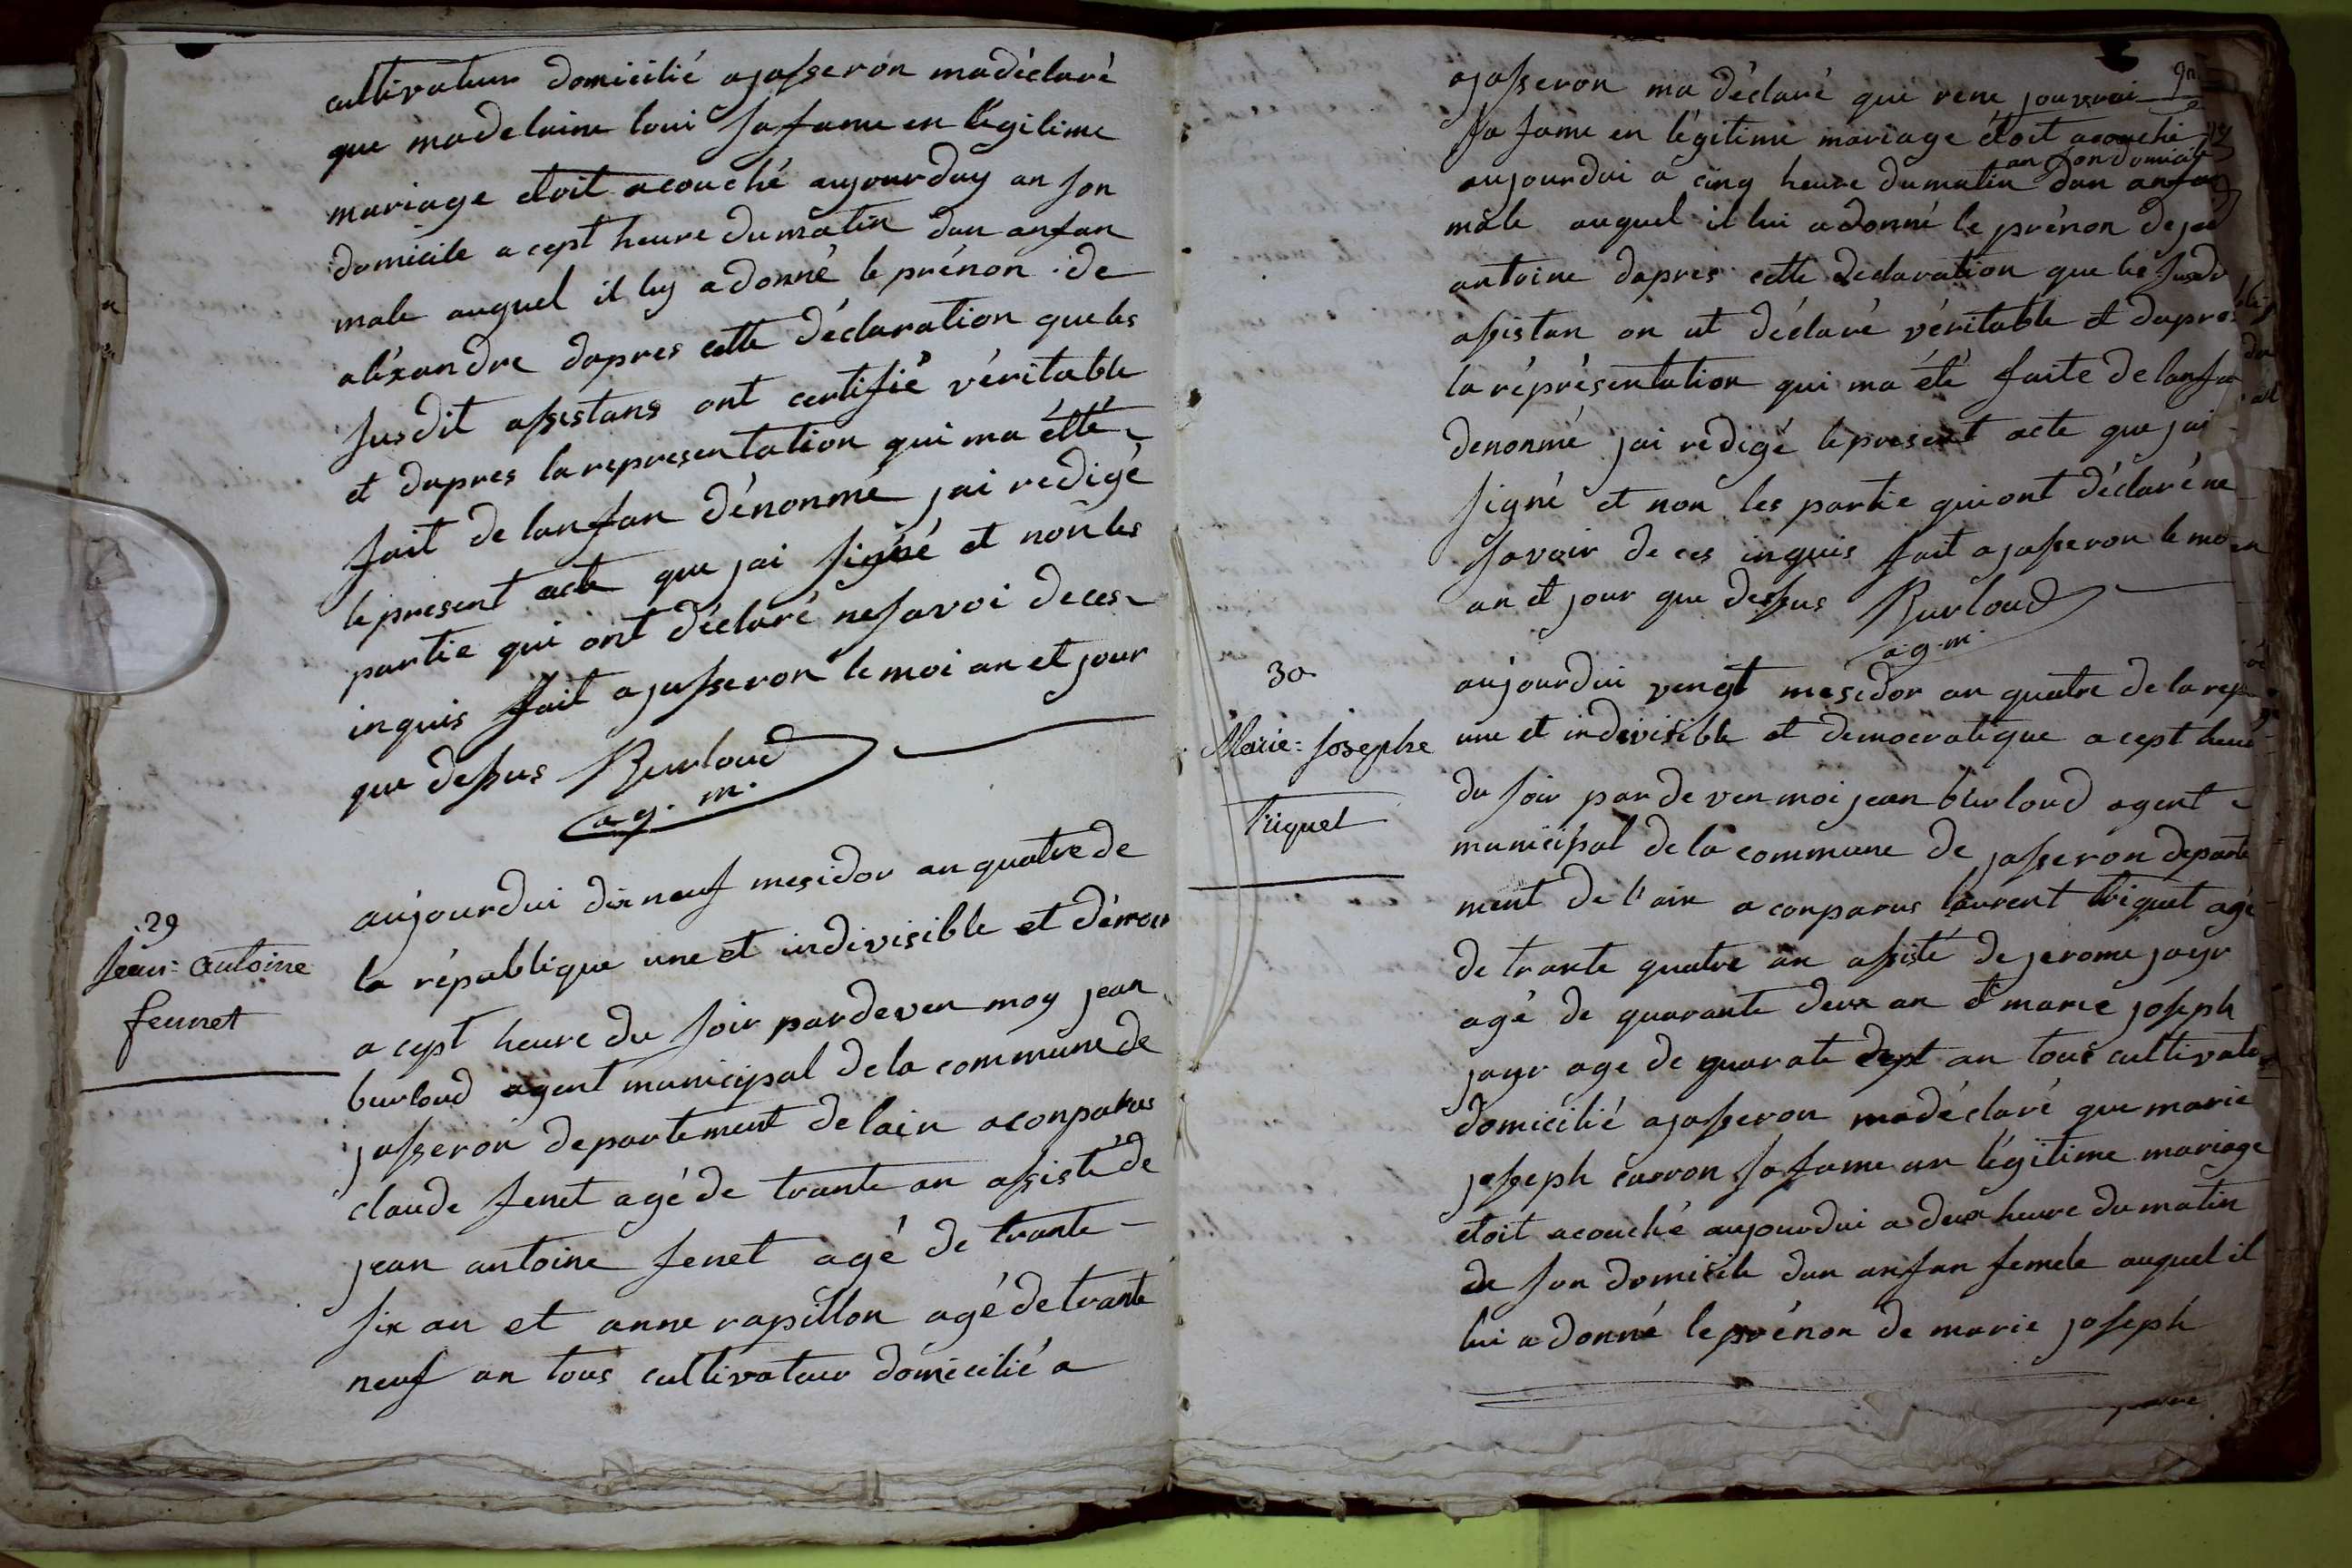 cultivateur domicilié a jasseron ma déclaré
que madelaine loui sa fame en légitime
mariage etoit acouché aujourduy an son
domicile a cept heure du matin dun anfan
male auquel il luy a donné le prénon de
aléxandre dapres cette déclaration que les
susdit assistans ont certifié véritable
et dapres la representation qui ma étté
fait de lanfan dénonmé jai redigé
le present acte que jai signé et non les
partie qui ont déclaré ne savoi de ces
inquis fait a jasseron le moi an et jour
que dessus Burloud
ag. m.
29
Jean = Antoine
fennet
aujourdui dix neuf mesidor an quatre de
la république une et indivisible et démoc
a cept heure du soir pardeven moy jean
burloud agent municipal de la commune de
jasseron departement de lain a conparus
claude fenet agé de trante an assisté de
jean antoine fenet agé de trante
six an et anne rapillon agé de trante
neuf an tous cultivateur domicilié a
a jasseron ma déclaré que rene jouvrai
sa fame en légitime mariage étoit acouché
an son domicile
aujourdui a cinq heure du matin dun anfan
mâle auquel il lui a donné le prénon de jea
antoine dapres cette declaration que les susdi
assistan on at déclaré véritable et dapres
la réprésentation qui ma été faite de lanfa
denonmé jai redigé le present acte que jai
signé et non les partie qui ont déclaré ne
savoir de ces inquis fait a jasseron le moi
an et jour que dessus Burloud
a.g.m.
30
Marie = Josephe
Triquet
aujourdui vengt mesidor an quatre de la rep
une et indivisible et democratique a cept heure
du soir par de ven moi jean burloud agent
municipal de la commune de jasseron departe
ment de l'ain a conparus laurent triquet agé
de trante quatre an assisté de jerome jayr
agé de quarante deux an et marie joseph
jayr age de quarate cept an tous cultivate
domicilié a jasseron ma déclaré que marie
joseph carron sa fame an légitime mariage
etoit acouché aujourdui a deux heure du matin
de son domicile dun anfan femele auquel il
lui a donné le prénon de marie joseph